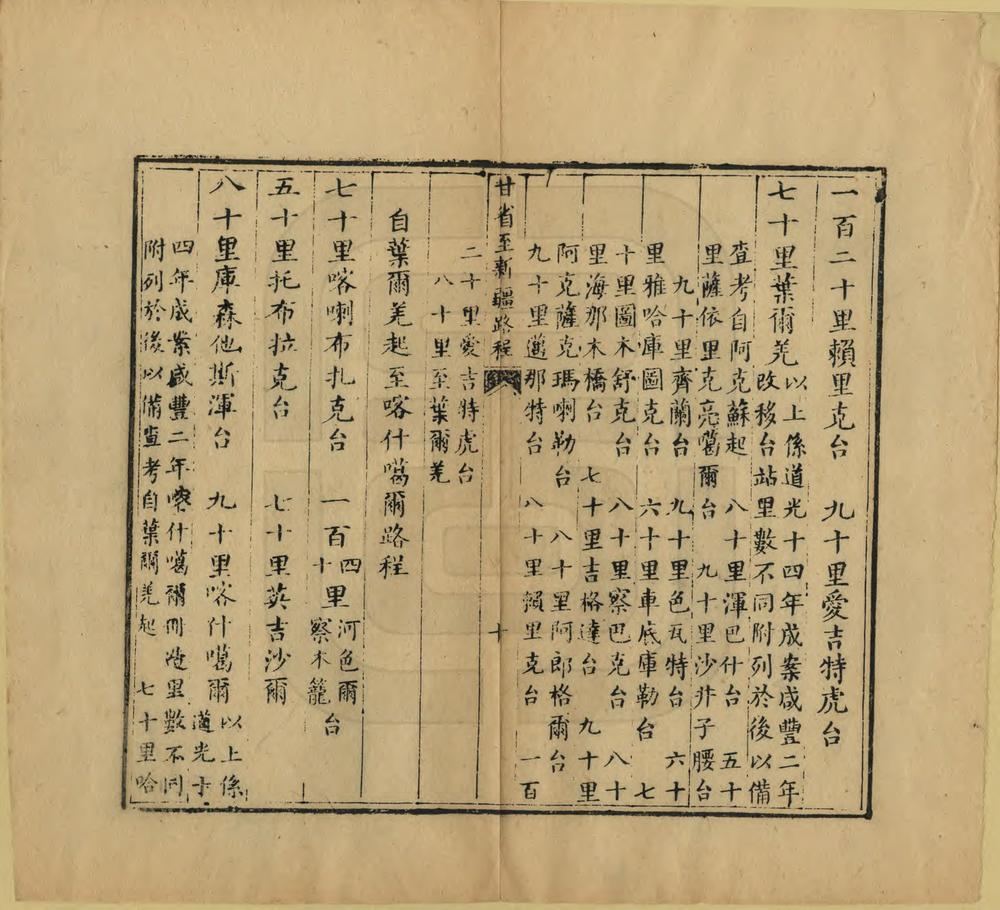 一百二十里賴里克台　九十里愛吉特虎台
七十里葉爾羌以上係道光十四年成案咸豐二年
改移台站里數不同附列於後以備
查考自阿克蘇起　八十里渾巴什台　五十
里薩依里克亮噶爾台　九十里沙井子腰台
九十里齊蘭台　九十里色瓦特台　六十
里雅哈庫圖克台　六十里車底庫勒台　七
十里圖木舒克台　八十里察巴克台　八十
里海那木橋台　七十里吉格達台　九十里
阿克薩克瑪喇勒台　八十里阿郎格爾台
九十里邁那特台　八十里賴里克台　一百
甘省至新疆路程　十
二十里愛吉特虎台
八十里至葉爾羌
自葉爾羌起至喀什噶爾路程
七十里喀喇布扎克台　一百四十里河色爾察木籠台
五十里托布拉克台　七十里英吉沙爾
八十里庫森他斯渾台　九十里喀什噶爾以上係
道光十
四年成案咸豐二年喀什噶爾冊造里數不同
附列於後以備查考自葉爾羌起　七十里哈